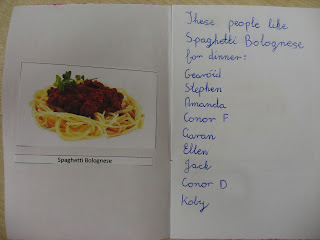 Spaghetti Bolognese
These people like
Spaghetti Bolognese
for dinner:
Gearóid
Stephen
Amanda
Conor F
Ciaran
Ellen
Jack
Conor D
Koby